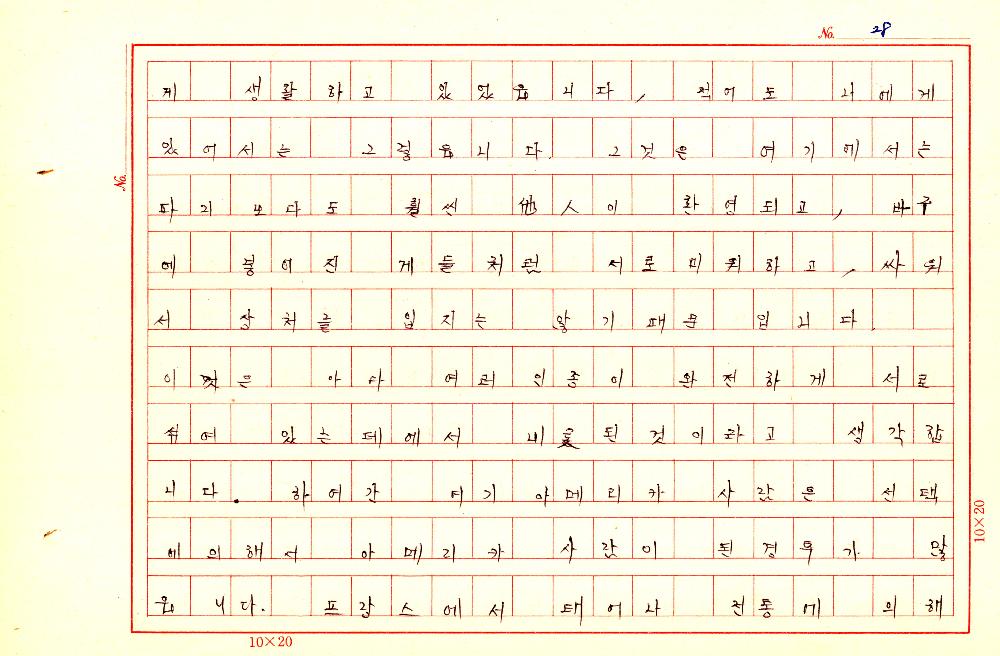 No. 28
게 생활하고 있었읍니다, 적어도 나에게
있어서는 그렇읍니다. 그것은 여기에서는
파리보다도 훨씬 他人이 환영되고, 바구
에 붙어진 게들처럼 서로 미워하고, 싸워
서 상처를 입지는 않기 때문 입니다.
이것은 아마 여러 인종이 완전하게 서로
섞여 있는데에서 비롯된 것이라고 생각합
니다. 하여간 여기 아메리카 사람은 선택
에 의해서 아메리카 사람이 된 경우가 많
읍니다. 프랑스에서 태어나 전통에 의해
No.
10×20
10×20